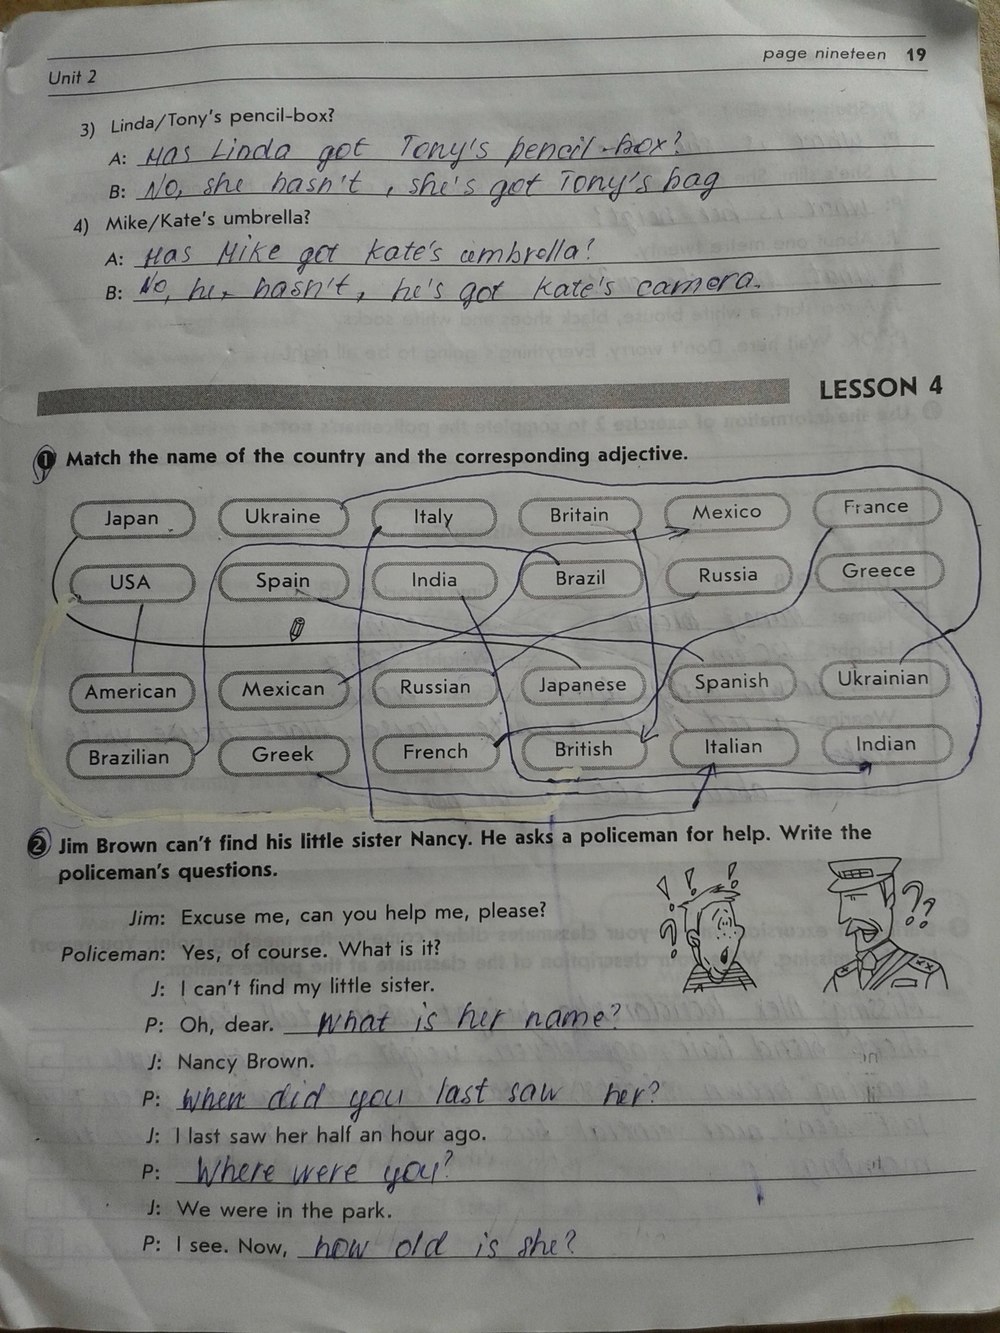 Unit 2
page nineteen 19
3) Linda/Tony's pencil-box?
A: Has Linda got Tony's pencil-box?
B: No, she hasn't, she's got Tony's bag
4) Mike/Kate's umbrella?
A: Has Mike got Kate's umbrella?
B: No, he hasn't, he's got Kate's camera.
LESSON 4
1 Match the name of the country and the corresponding adjective.
Japan Ukraine Italy Britain Mexico France
USA Spain India Brazil Russia Greece
American Mexican Russian Japanese Spanish Ukrainian
Brazilian Greek French British Italian Indian
2 Jim Brown can't find his little sister Nancy. He asks a policeman for help. Write the
policeman's questions.
Jim: Excuse me, can you help me, please?
Policeman: Yes, of course. What is it?
J: I can't find my little sister.
P: Oh, dear. What is her name?
J: Nancy Brown.
P: When did you last saw her?
J: I last saw her half an hour ago.
P: Where were you?
J: We were in the park.
P: I see. Now, how old is she?